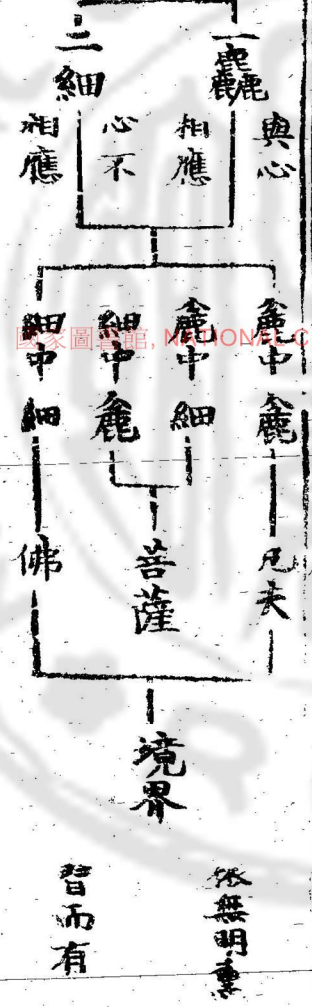 一麤
與心
相應
二細
心不
相應
麁中麁
麁中細
細中麁
細中細
凡夫
菩薩
佛
境界
依無明熏
習而有
國家圖書館, NATIONAL C